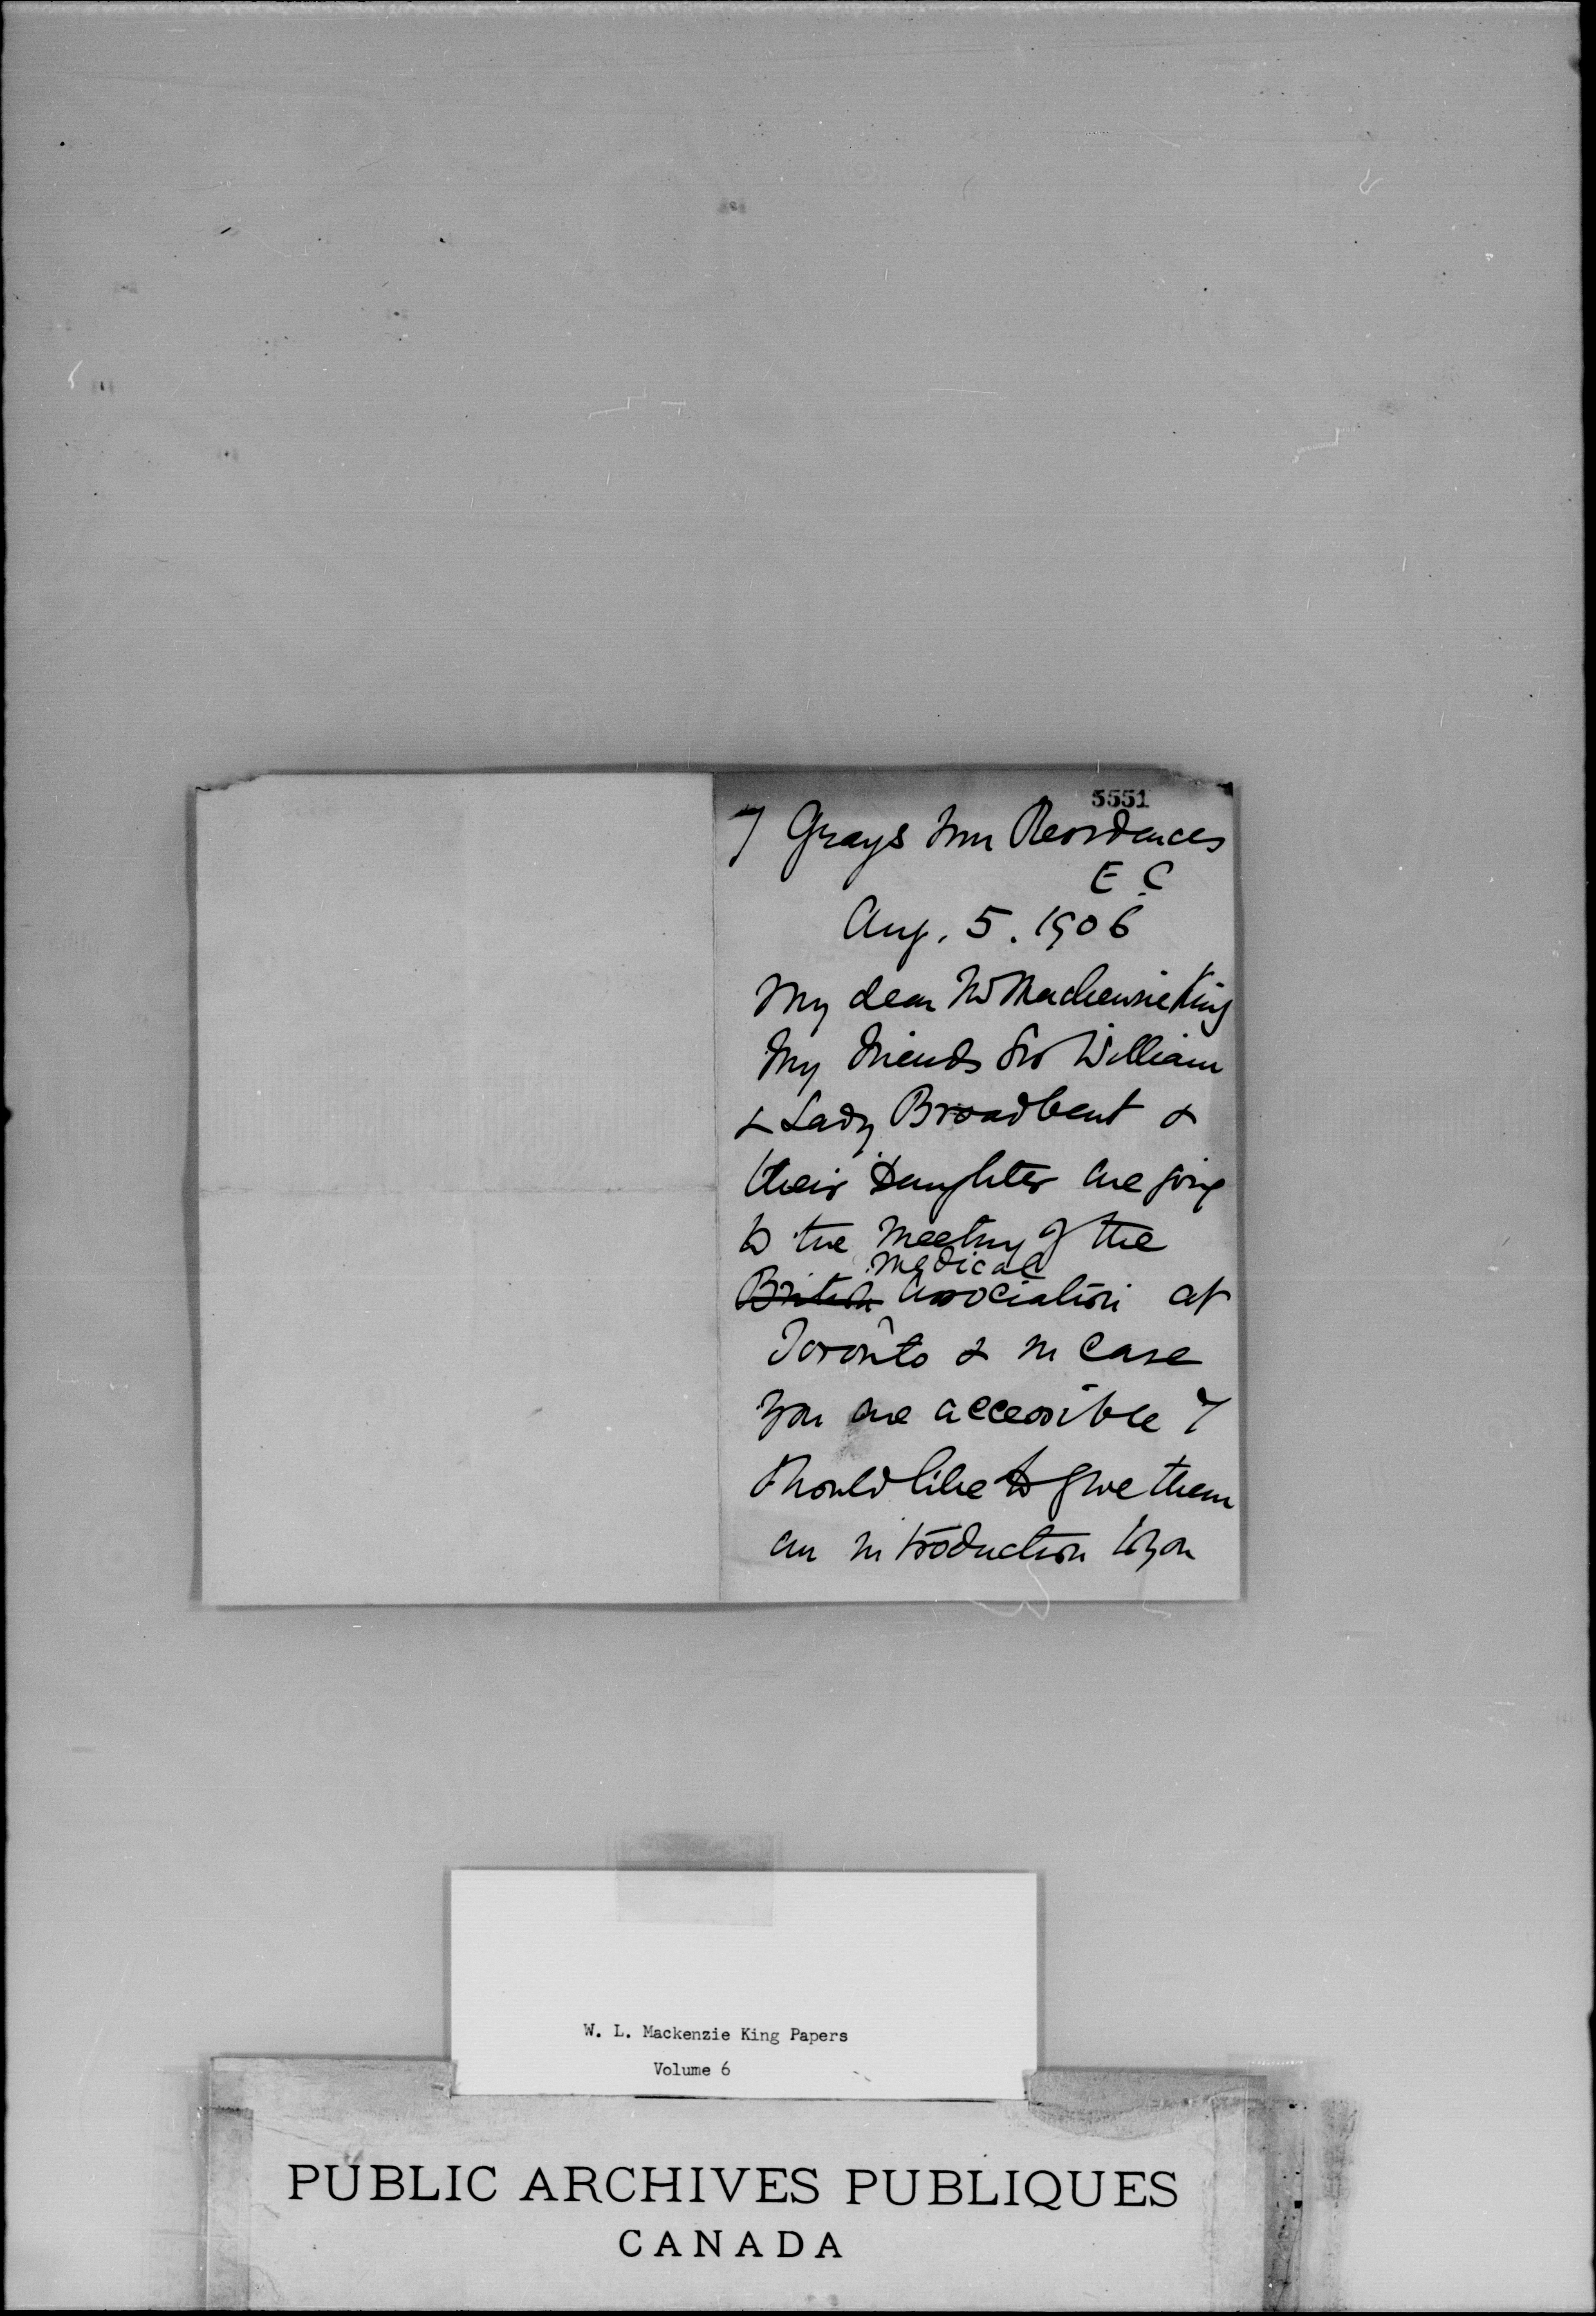 5551
7 Grays Inn Residences
E.C
Aug. 5. 1906
My dear Mr Mackenzie King
My friends Sir William
& Lady Broadbent &
their daughter are going
to the meeting of the
Medical
British Association at
Toronto & in case
you are accessible I
should like to give them
an introduction to you
W. L. Mackenzie King Papers
Volume 6
PUBLIC ARCHIVES PUBLIQUES
CANADA